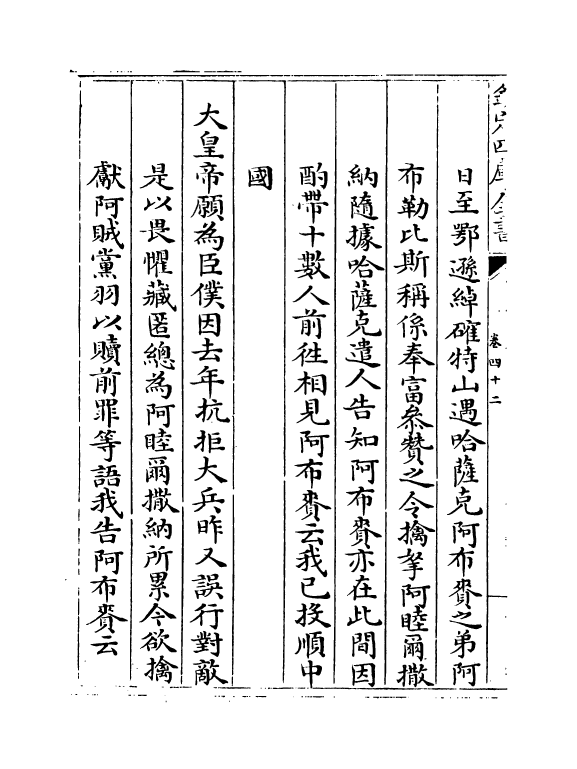 欽定四庫全書
卷四十二
日至鄂遜綽確特山遇哈薩克阿布賚之弟阿
布勒比斯稱係奉富叅贊之令擒拏阿睦爾撒
納隨據哈薩克遣人告知阿布賚亦在此間因
酌帶十數人前徃相見阿布賚云我已投順中
國
大皇帝願為臣僕因去年抗拒大兵昨又誤行對敵
是以畏懼藏匿總為阿睦爾撒納所累今欲擒
獻阿賊黨羽以贖前罪等語我告阿布賚云